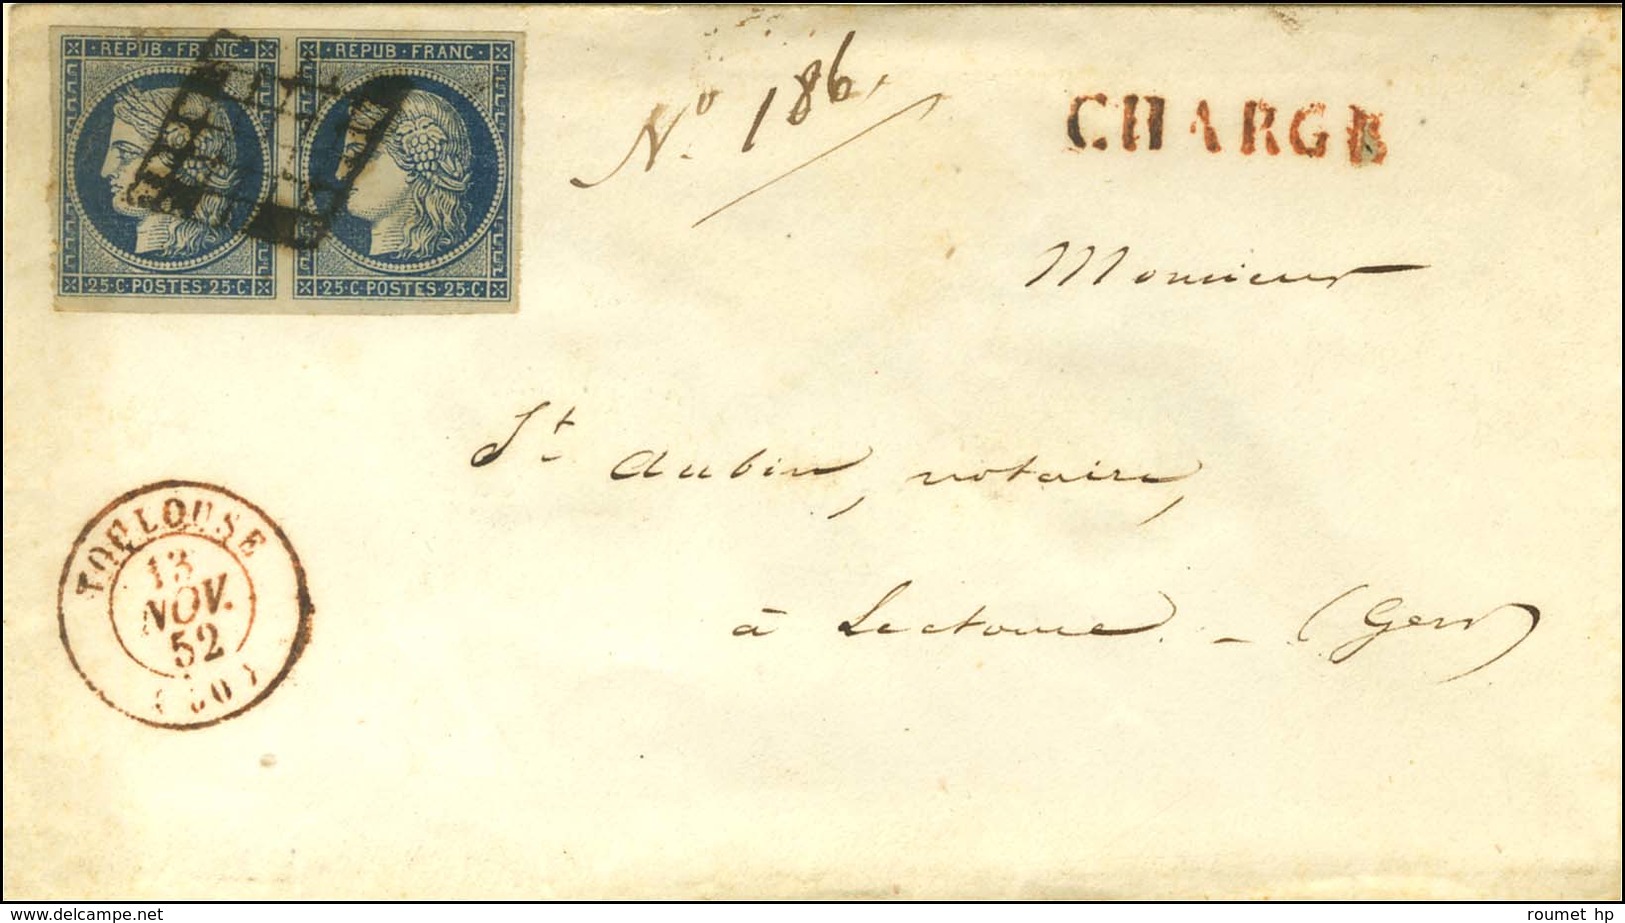 REPUB·FRANC· REPUB·FRANC·
25·C·POSTES·25·C· 25·C·POSTES·25·C·
N° 186.
CHARGE
Monsieur
St Aubin, notaire,
à Lectoure. - (Gers)
TOULOUSE
13
NOV.
52
(30)
delcampe.net
roumet hp